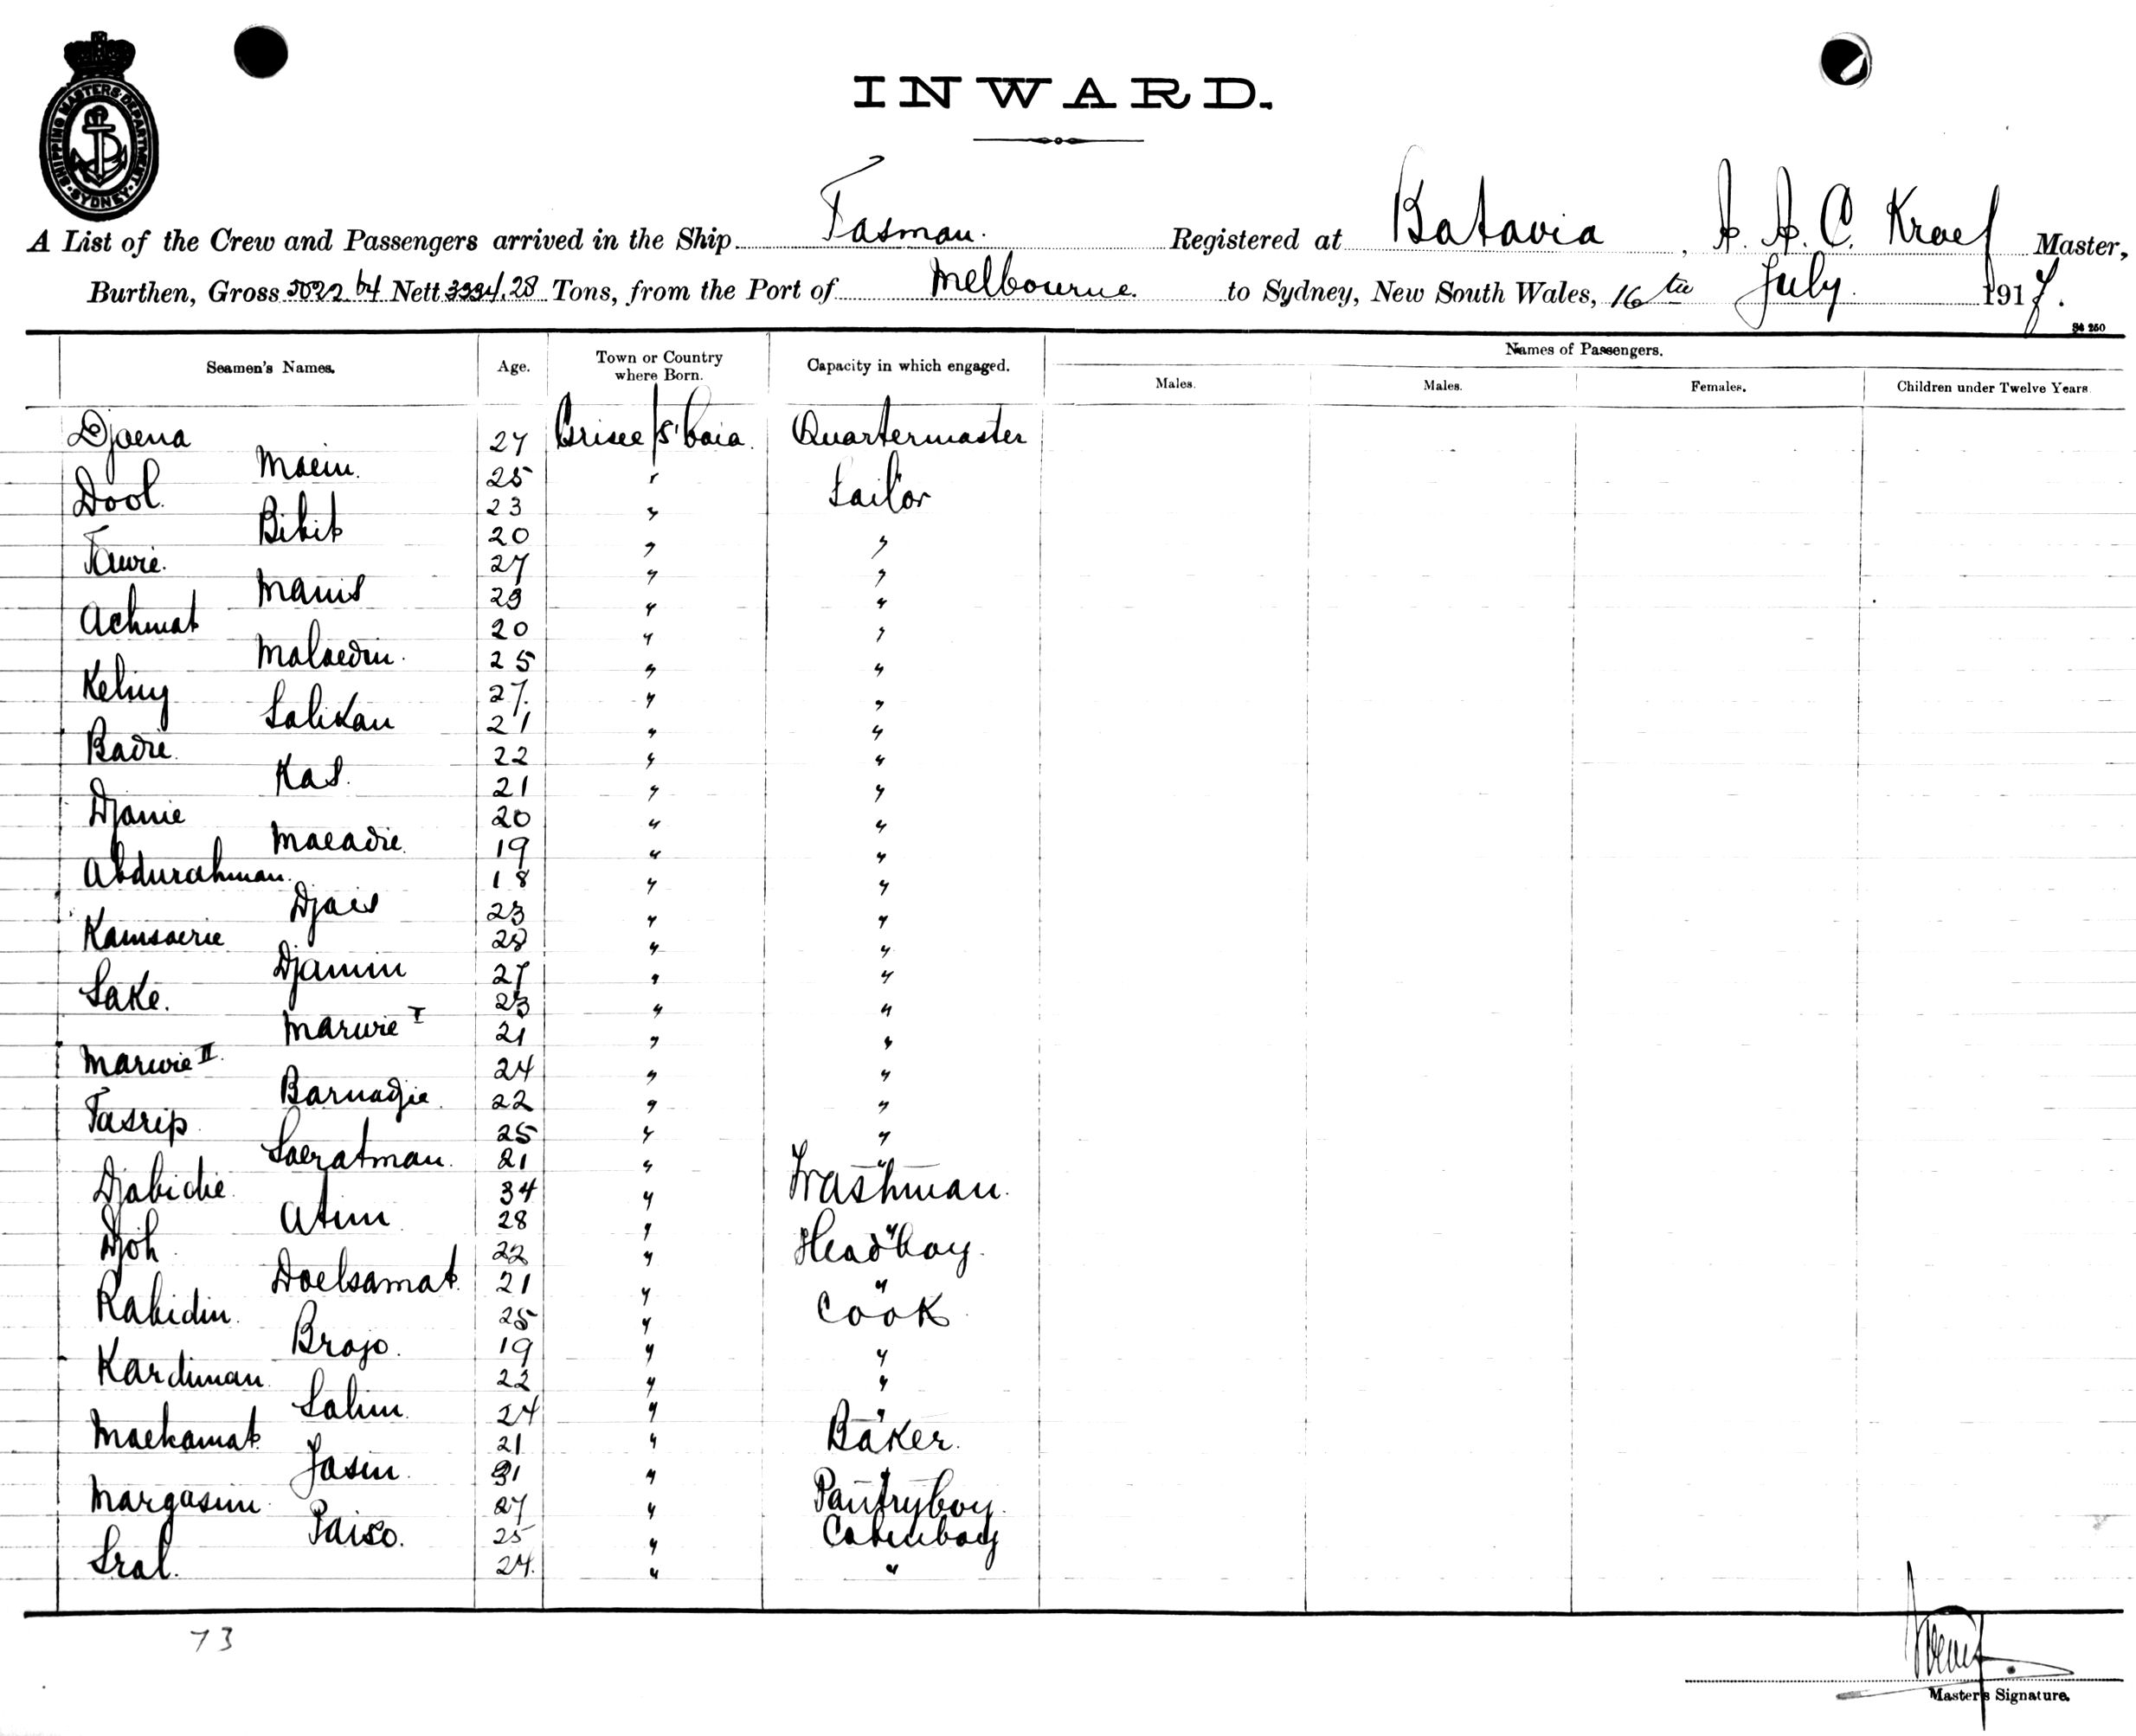 SHIPPING MASTERS DEPARTMENT SYDNEY
INWARD.
A List of the Crew and Passengers arrived in the Ship Tasman. Registered at Batavia, Master,
Burthen, Gross Nett .28 Tons, from the Port of Melbourne. to Sydney, New South Wales, 16th July 1917.
Seamen's Names. Age. Town or Country where Born. Capacity in which engaged. Names of Passengers.
Males. Males. Females. Children under Twelve Years
Djoena 27 Quartermaster
Moein. 25 "
Dool. 23 " Sailor
Bibit 20 " "
Tawie. 27 " "
Manis 29 " "
Achmat 20 " "
Maloedin. 25 " "
27. " "
Salikan 21 " "
Badie. 22 " "
Kas. 21 " "
Djanie 20 " "
19 " "
Abdurahman. 18 " "
Djais 23 " "
Kamsoerie 28 " "
Djamin 27 " "
Sake. 23 " "
Marwie I 21 " "
Marwie II. 24 " "
22 " "
Tasrip 25 " "
Soeratman. 21 " "
Djabidie 34 "
Atim 28 " "
Djoh 22 " Headboy.
Doelsamat. 21 " "
Rabidin. 25 " Cook
Brojo. 19 " "
Kardiman 22 " "
Salim. 24 " "
21 " Baker.
Jasin. 31 " "
Margasim 27 " Pantryboy.
Paiso. 25 " Cabinboy
Sral. 24. " "
73
Master's Signature.